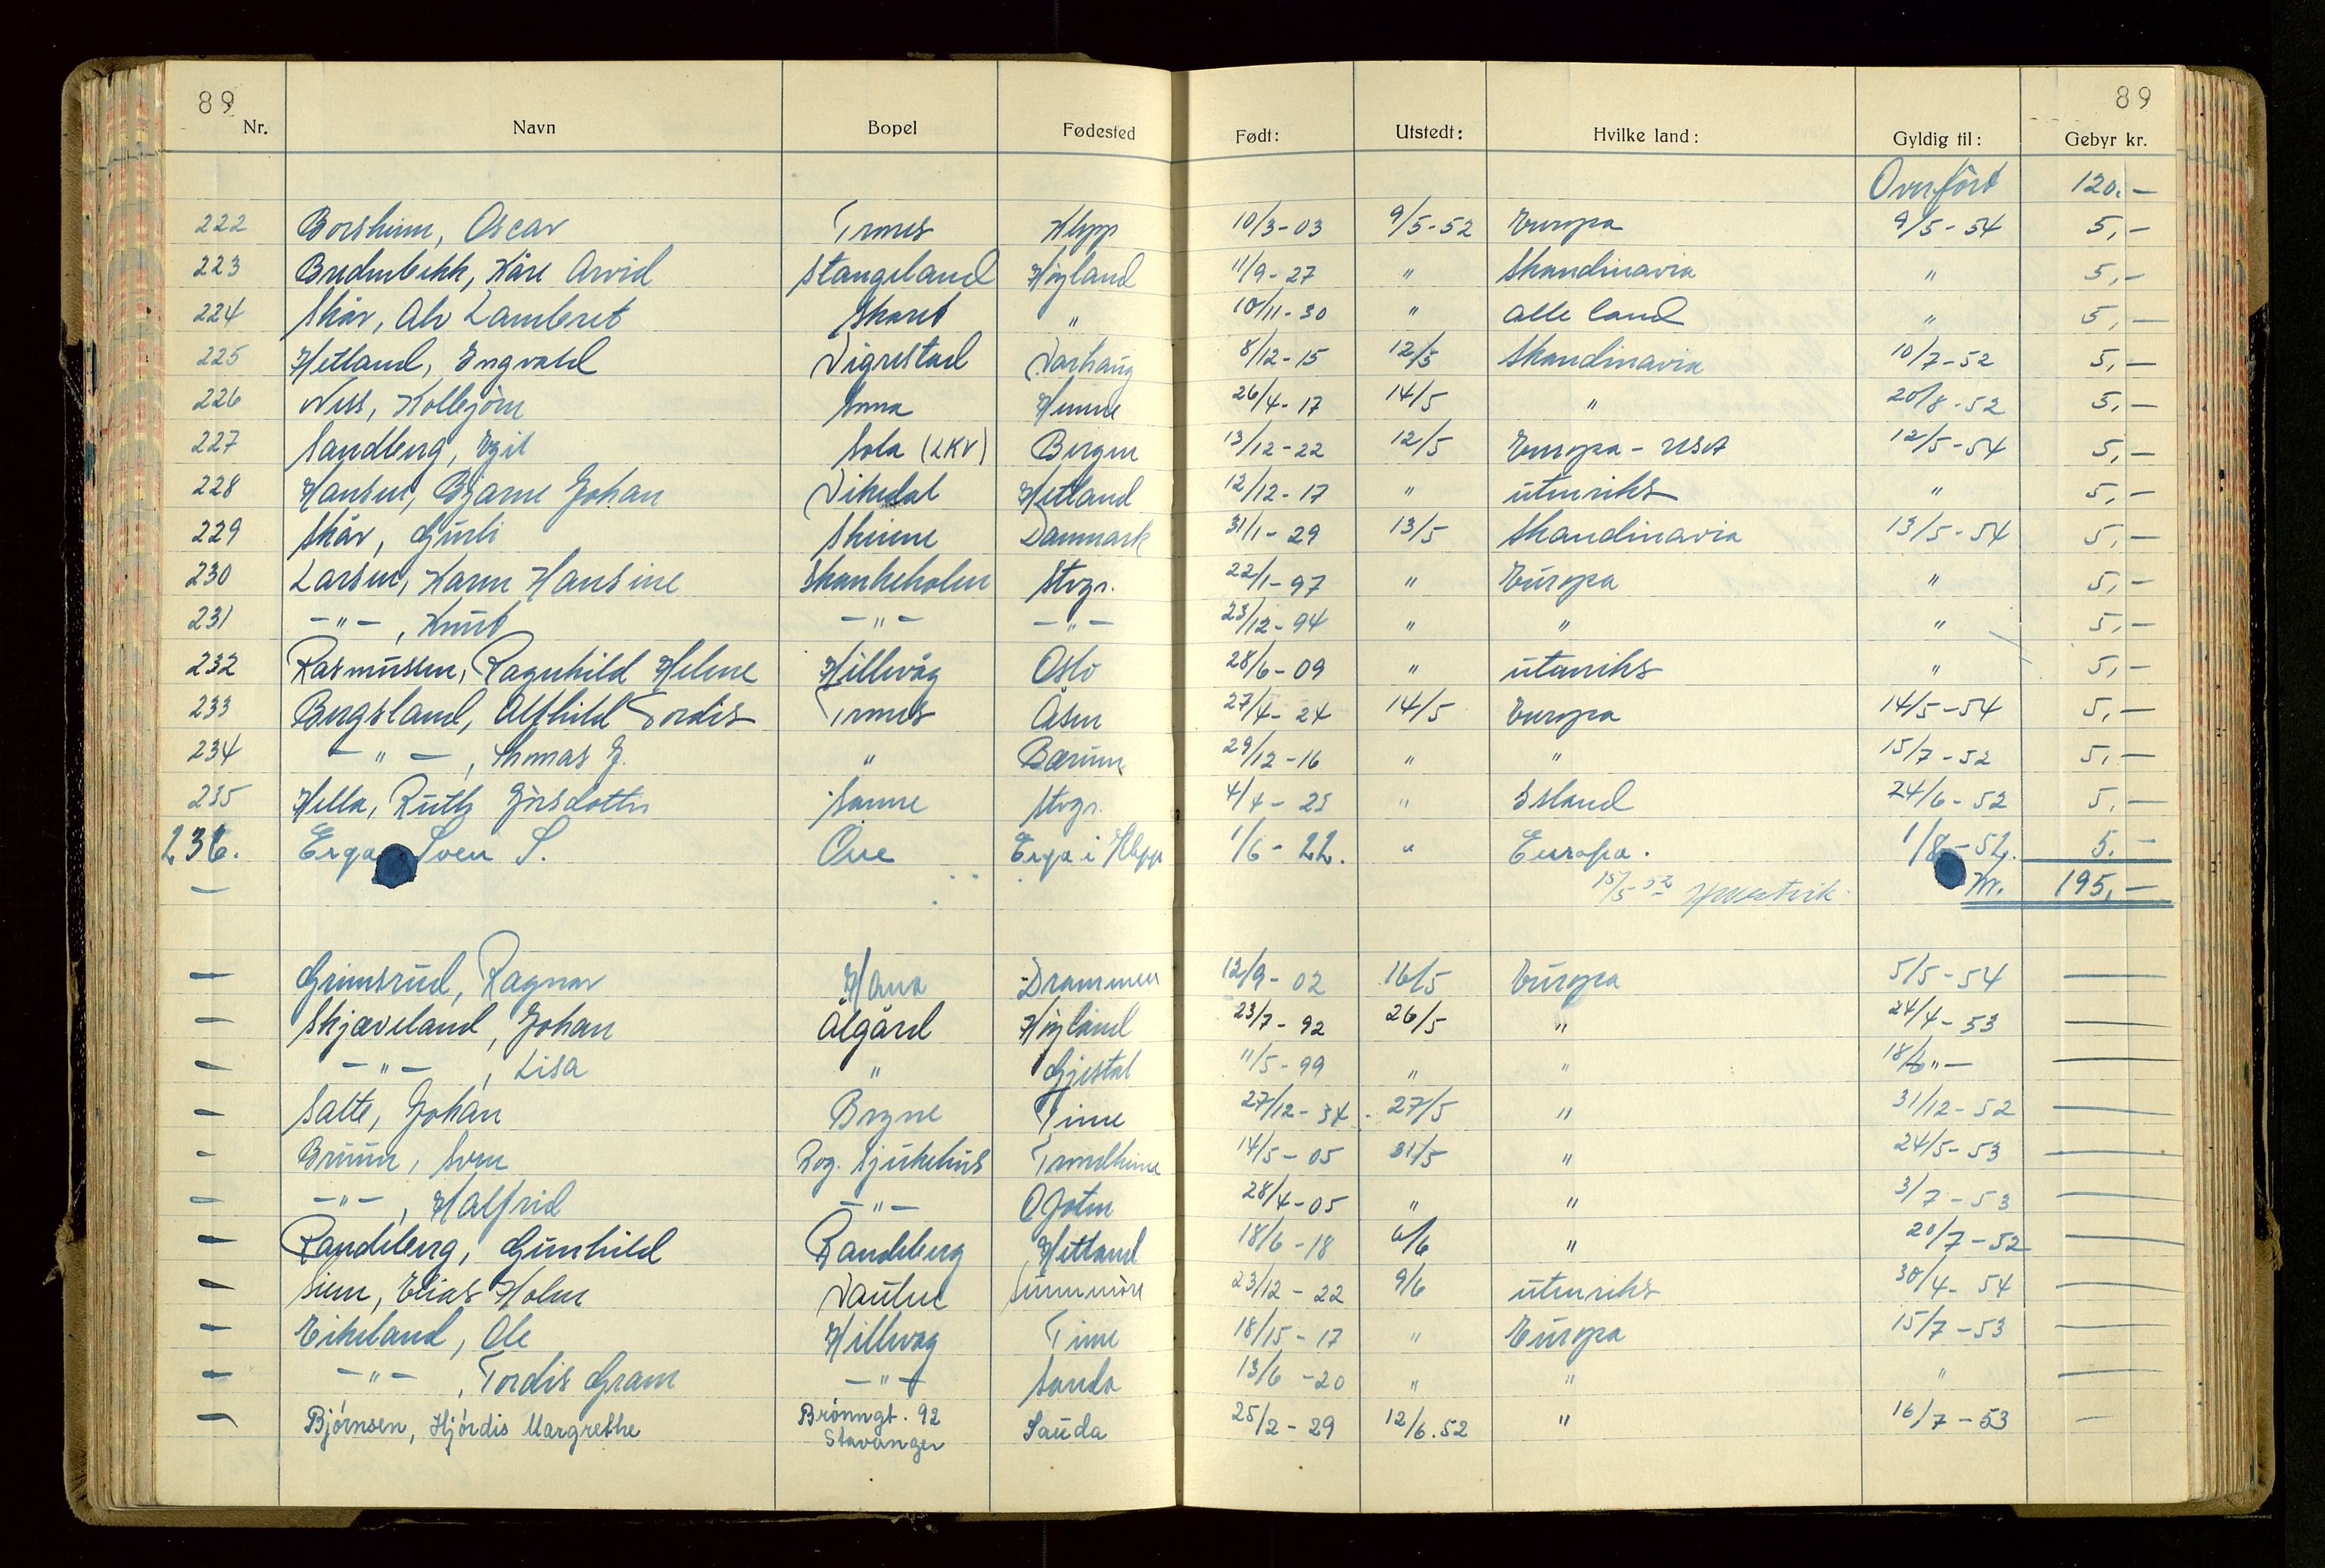 89 89
Nr. Navn Bopel Fødested Født: Utstedt: Hvilke land: Gyldig til: Gebyr kr.
Overført 120,-
222 Borsheim, Oscar Klepp 10/3-03 9/5-52 Europa 9/5-54 5,-
223 Bredenbekk, Kåre Arvid Stangeland Høyland 11/9-27 " Skandinavia " 5,-
224 Skår, Alv Lambret Skaret " 10/11-30 " alle land " 5,-
225 Hetland, Engvald Vigrestad Varhaug 8/12-15 12/5 Skandinavia 10/7-52 5,-
226 Ness, Kollbjörn 26/4-17 14/5 " 20/8-52 5,-
227 Sandberg, Egil Sola (LKV) Bergen 13/12-22 12/5 Europa - USA 12/5-54 5,-
228 Hansen, Bjarne Johan Vikedal Hetland 12/12-17 " utenriks " 5,-
229 Skår, Gurli Skeiene Danmark 31/1-29 13/5 Skandinavia 13/5-54 5,-
230 Larsen, Karen Hansine Skankeholen Stvgr. 22/1-97 " Europa " 5,-
231 -"- , Knut -"- -"- 23/12-94 " " " 5,-
232 Rasmussen, Ragnhild Helene Hillevåg Oslo 28/6-09 " utenriks " 5,-
233 Bergsland, Alfhild Tordis Åsen 27/4-24 14/5 Europa 14/5-54 5,-
234 -"- , Thomas G. " Bærum 29/12-16 " " 15/7-52 5,-
235 Hella, Ruth Gjisdottir Stvgr. 4/4-25 " Island 24/6-52 5,-
236. Erga Sven S. Orre Erga i Klepp 1/6-22. " Europa. 1/8-52. 5.-
- 15/5 52 Kr. 195,-
- Grimsrud, Ragnar Hana Drammen 12/9-02 16/5 Europa 5/5-54 —
- Skjæveland, Johan Ålgård Høyland 23/7-92 26/5 " 24/4-53 —
- -"- , Lisa " Gjestal 11/5-99 " " 18/6 "- —
- Salte, Johan Bryne Time 27/12-34. 27/5 " 31/12-52 —
- Bruun, Sven Rog. Sjukehus Trondheim 14/5-05 31/5 " 24/5-53 —
- -"- , Halfrid -"- 28/4-05 " " 3/7-53 —
- Randeberg, Gunhild Randeberg Hetland 18/6-18 6/6 " 20/7-52 —
- Siem, Elias Holm Vaulen Sunnmöre 23/12-22 9/6 utenriks 30/4-54 —
- Eikeland, Ole Hillevåg Time 18/15-17 " Europa 15/7-53 —
- -"- , Tordis Gram -"- Sauda 13/6-20 " " " —
- Bjørnsen, Hjørdis Margrethe Brönngt. 92 Sauda 25/2-29 12/6.52 " 16/7-53 —
Stavanger